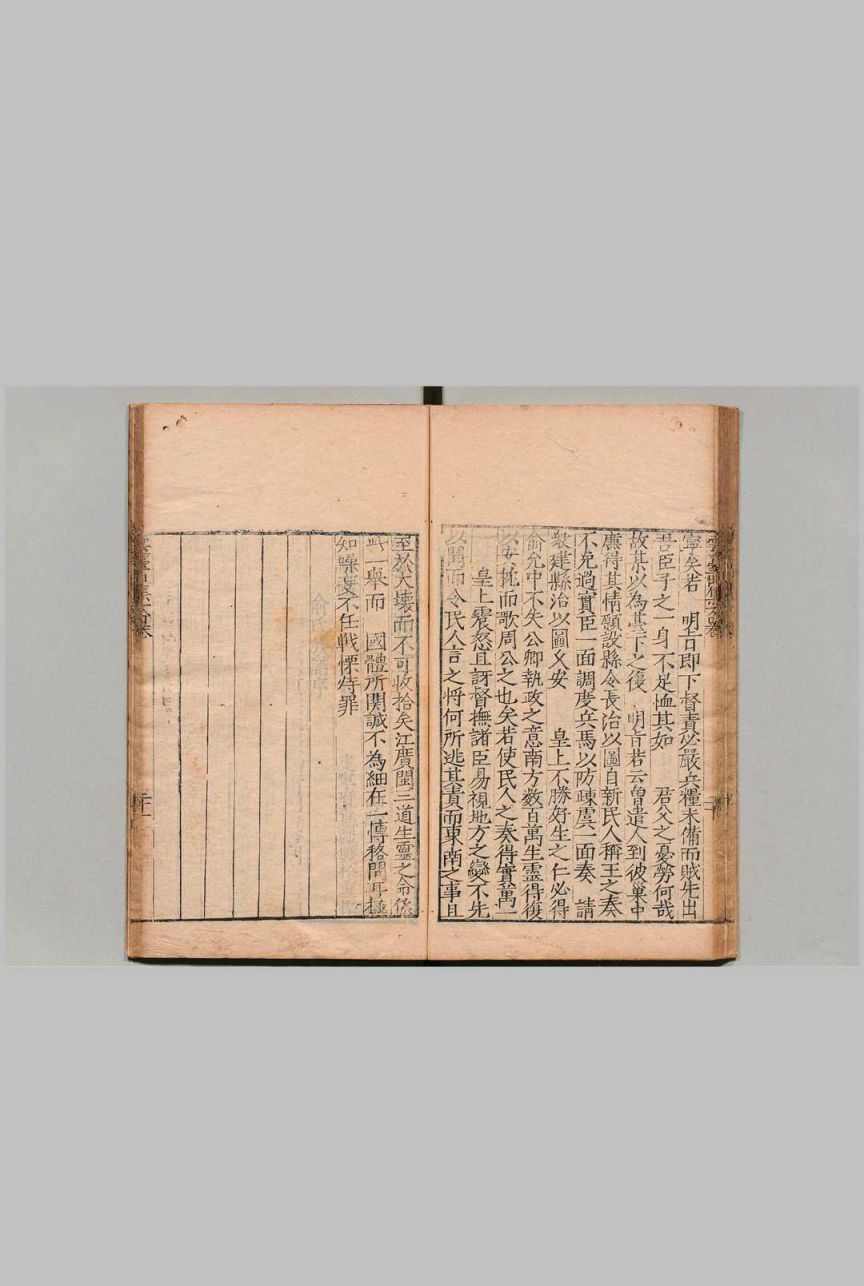 寧矣若　明旨即下督責必嚴兵糧未備而賊先出
吾臣子之一身不足恤其如　君父之憂勞何哉
故某以為莫下之後　明旨若云曾遣人到彼巢中
廉得其情願設縣令長治以圖自新民人稱王之奏
不免過實臣一面調度兵馬以防疎虞一面奏　請
裂建縣治以圖乂安　皇上不勝好生之仁必得
俞允中不失公卿執政之意南方数百萬生靈得復
以安枕而歌周公之也矣若使民人之奏得實萬一
皇上震怒且訝督撫諸臣易視地方之變不先
以聞而令民人言之將何所逃其責而東南之事且
至於大壞而不可收拾矣江廣閩三道生靈之命係
此一舉而　國體所関誠不為細在一傳務間耳極
知噪瀆不任戰慄待罪
二十
二十一